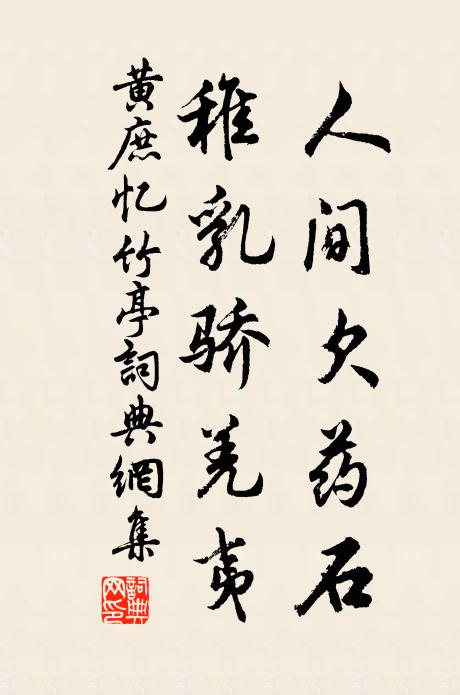 人间欠药石
稚乳骄羌夷
黄庶忆竹亭詞典網集
詞典网印